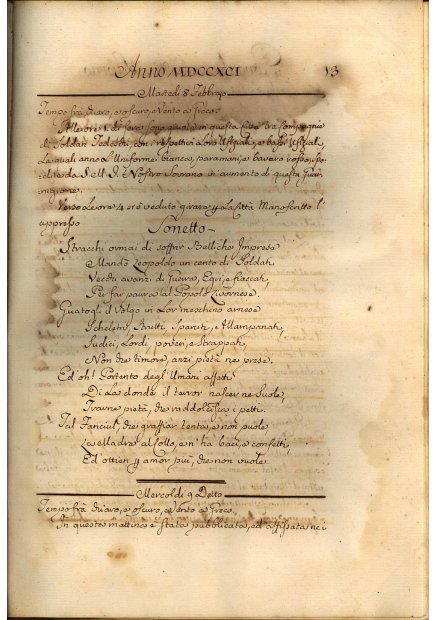 Anno MDCCXCI 13
Martedì 8 Febbrajo
Tempo fra chiaro, e oscuro, e Vento a Greco.
Alle ore 1 di sera sono giunte in questa Città tre Compagnie
di Soldati Tedeschi, con i respettivi Loro Uffiziali, e bassi Uffiziali,
Le quali anno L'Uniforme bianco, paramani, e bavero rosso, spe-
dite da S. M. I. il Nostro Sovrano in aumento di questa Guar-
nigione.
Verso Le ore 4 si è veduto girare p La Città Manoscritto l'
appresso
Sonetto
Stracchi ormai di soffrir Belliche Imprese
Mandò Leopoldo un cento di Soldati,
Vecchi avanzi di Guerra, Egri, e fiaccati,
Per far paura al Popolo Livornese.
Guatogli il Volgo in Lor meschino arnese
Scheletri, Strutti, Spariti, e Allampanati,
Sudici, Lordi, poveri, e Strappati,
Non che timore, anzi pietà ne prese.
Ed oh! Portento degl'Umani affetti
Di La donde il terror nascer ne Suole,
Trarne pietà, che raddolcisca i petti.
Tal Fanciul, che graffiar tenta, e non puole
La Madre al collo, e n'ha baci, e confetti,
Ed ottien p amor più, che non vuole.
Mercoldì 9 Detto
Tempo fra chiaro, e oscuro, e Vento a Greco.
In questa mattina è stata pubblicata, ed affissata ne i